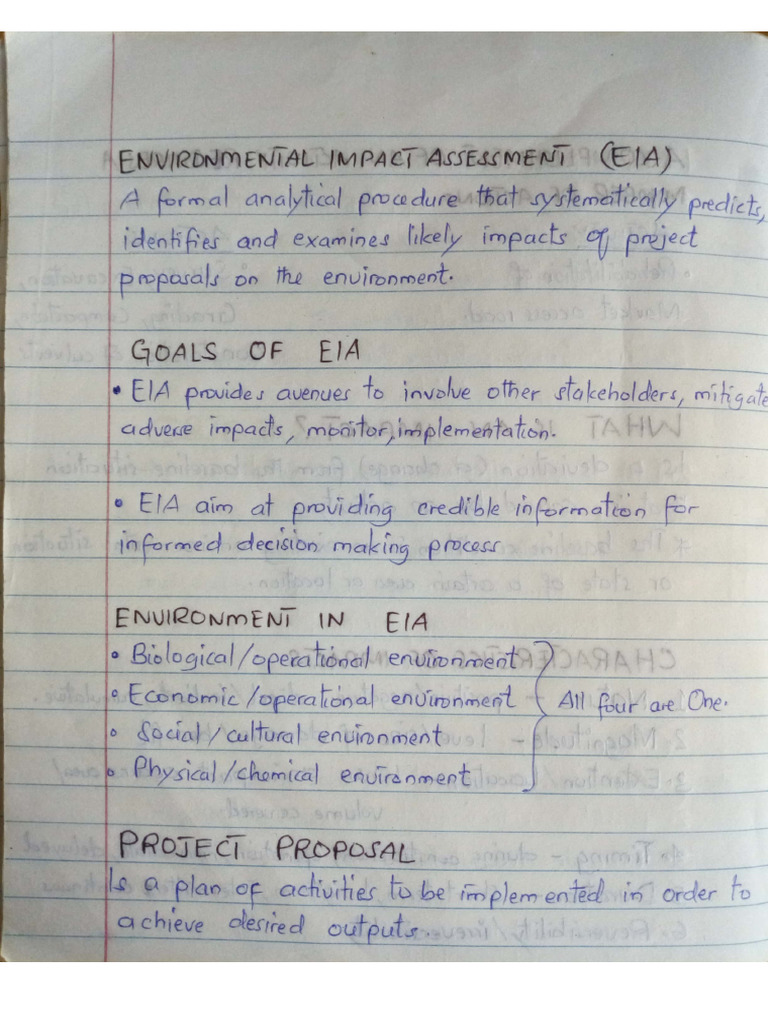 ENVIRONMENTAL IMPACT ASSESSMENT (EIA)
A formal analytical procedure that systematically predicts,
identifies and examines likely impacts of project
proposals on the environment.
GOALS OF EIA
• EIA provides avenues to involve other stakeholders, mitigate
adverse impacts, monitor, implementation.
• EIA aim at providing credible information for
informed decision making process
ENVIRONMENT IN EIA
• Biological/operational environment
• Economic/operational environment
• Social/cultural environment
• Physical/chemical environment
All four are One.
PROJECT PROPOSAL
Is a plan of activities to be implemented in order to
achieve desired outputs.